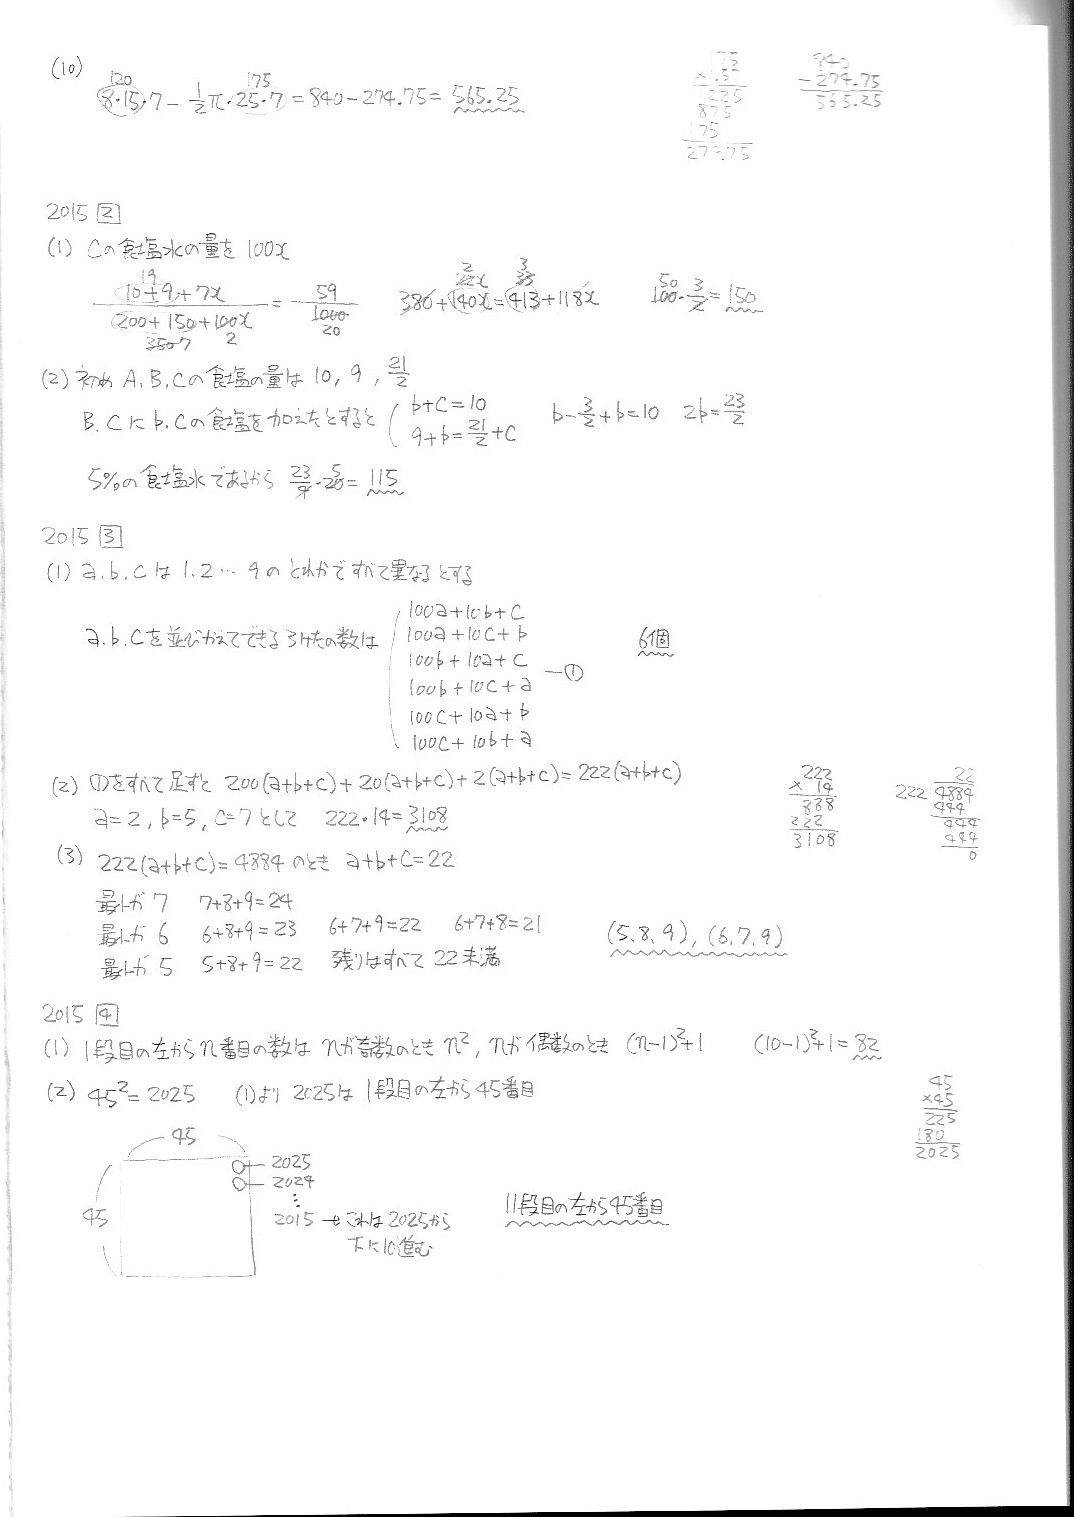 (10) 8・15・7 - 1/2 π・25・7 = 840 - 274.75 = 565.25
120 175
175
×1.57
1225
875
175
274.75
840
-274.75
565.25
2015 2
(1) Cの食塩水の量を 100x
(10+9+7x)/(200+150+100x) = 59/1000
19
350 7 2
20
380+140x=413+118x
2 22x 3 33
100・3/2=150
50
(2) 初め A, B, Cの食塩の量は 10, 9, 21/2
B, Cに b, cの食塩を加えたとすると
b+c=10
9+b=21/2+c
b-3/2+b=10 2b=23/2
5%の食塩水であるから 23/4・20=115
5
2015 3
(1) a, b, c は 1, 2 … 9 のどれかですべて異なるとする
a, b, cを並びかえてできる3けたの数は
100a+10b+c
100a+10c+b
100b+10a+c
100b+10c+a
100c+10a+b
100c+10b+a
―①
6個
(2) ①をすべて足すと 200(a+b+c)+20(a+b+c)+2(a+b+c)=222(a+b+c)
a=2, b=5, c=7として 222・14=3108
222
× 14
888
222
3108
22
222 4884
444
444
444
0
(3) 222(a+b+c)=4884 のとき a+b+c=22
最小が 7 7+8+9=24
最小が 6 6+8+9=23 6+7+9=22 6+7+8=21
最小が 5 5+8+9=22 残りはすべて 22未満
(5, 8, 9), (6, 7, 9)
2015 4
(1) 1段目の左からn番目の数は nが奇数のとき n², nが偶数のとき (n-1)²+1 (10-1)²+1=82
(2) 45²=2025 (1)より 2025は 1段目の左から45番目
45
×45
225
180
2025
45
45
2025
2024
⋮
2015 → これは2025から
下に10進む
11段目の左から45番目